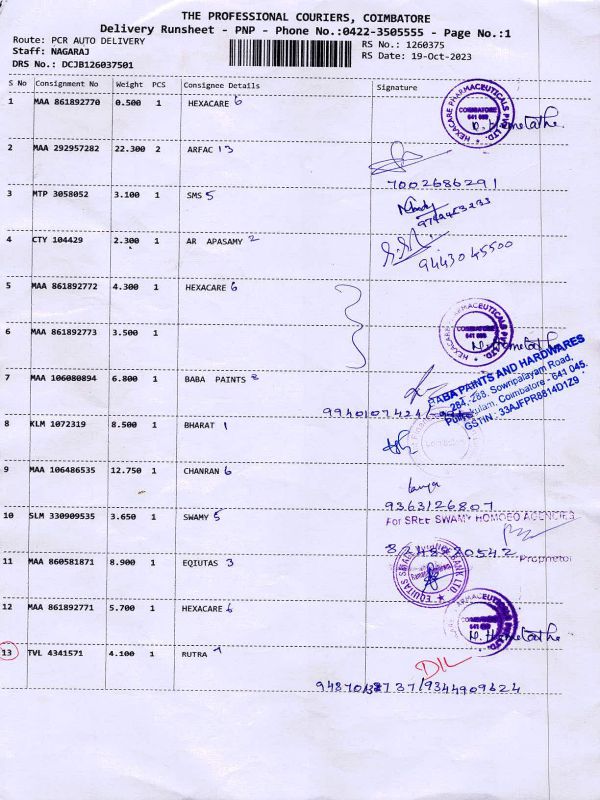 THE PROFESSIONAL COURIERS, COIMBATORE
Delivery Runsheet - PNP - Phone No.:0422-3505555 - Page No.:1
Route: PCR AUTO DELIVERY
RS No.: 1260375
Staff: NAGARAJ
RS Date: 19-Oct-2023
DRS No.: DCJB126037501
S No Consignment No Weight PCS Consignee Details Signature
1 MAA 861892770 0.500 1 HEXACARE 6
HEXACARE PHARMACEUTICALS PVT. LTD.
COIMBATORE
2 MAA 292957282 22.300 2 ARFAC 13
7002686291
3 MTP 3058052 3.100 1 SMS 5
4 CTY 104429 2.300 1 AR APASAMY 2
9443045500
5 MAA 861892772 4.300 1 HEXACARE 6
6 MAA 861892773 3.500 1
7 MAA 106080894 6.800 1 BABA PAINTS
BABA PAINTS AND HARDWARES
284, 288, Sowripalayam Road,
Coimbatore - 641 045.
GSTIN : 33AJFPR8814D1Z9
8 KLM 1072319 8.500 1 BHARAT 1
9 MAA 106486535 12.750 1 CHANRAN 6
9363126807
10 SLM 330909535 3.650 1 SWAMY 5
For SREE SWAMY HOMOEO AGENCIES
Proprietor
11 MAA 860581871 8.900 1 EQIUTAS 3
12 MAA 861892771 5.700 1 HEXACARE 6
13 TVL 4341571 4.100 1 RUTRA
9344909624